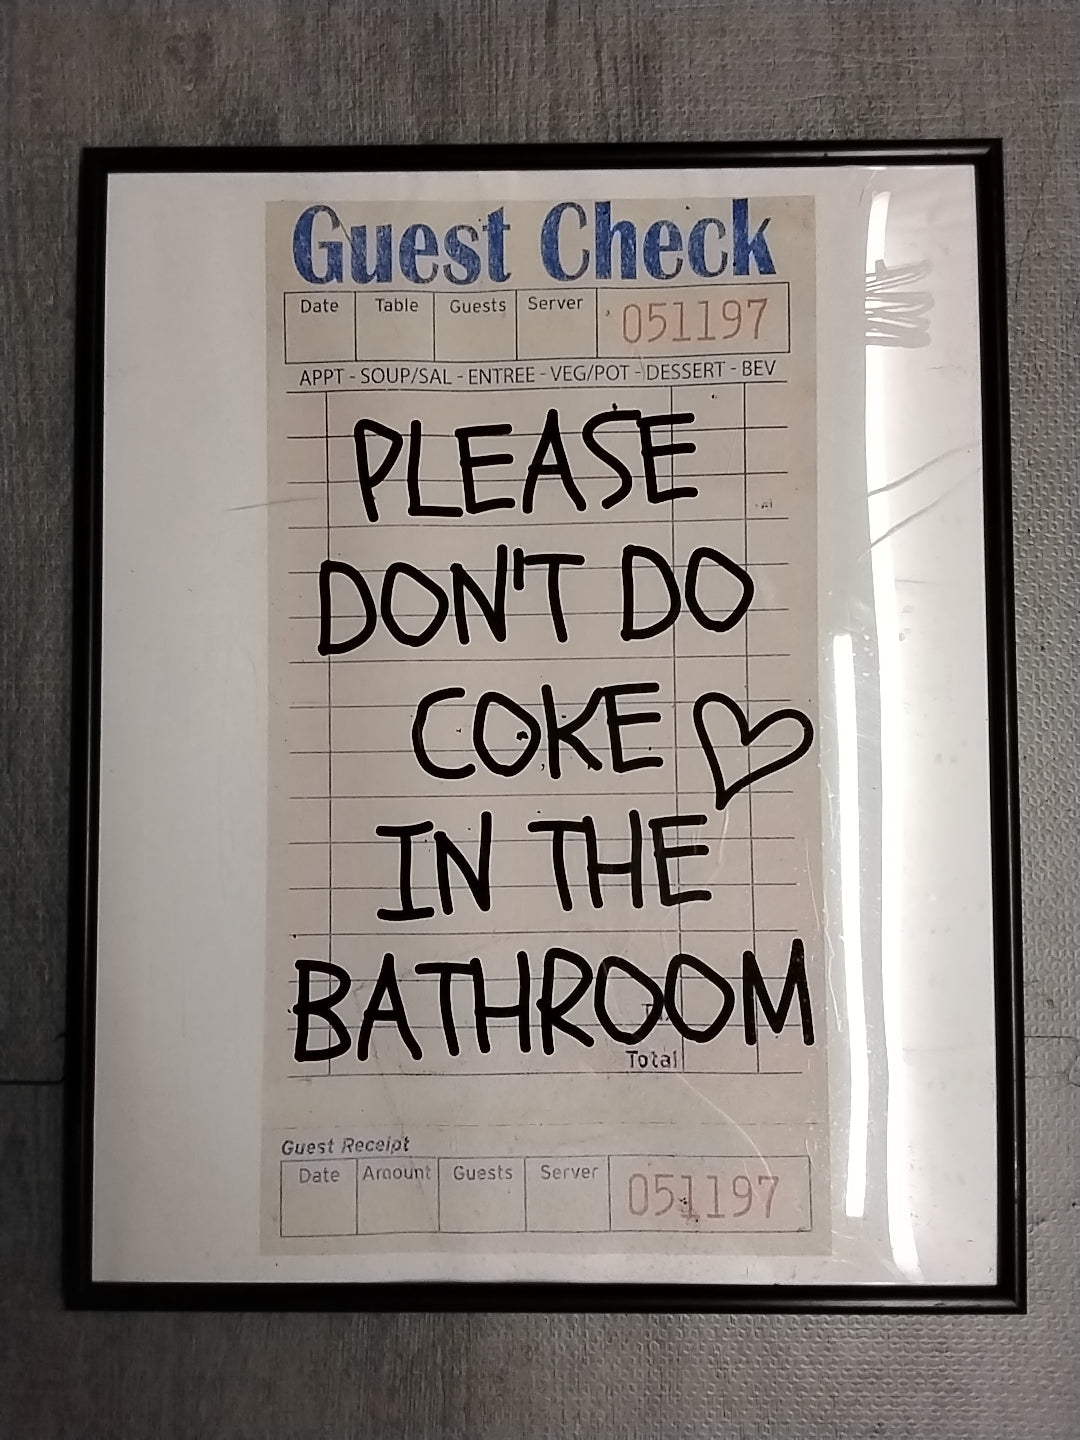 Guest Check
Date Table Guests Server 051197
APPT - SOUP/SAL - ENTREE - VEG/POT - DESSERT - BEV
PLEASE
DON'T DO
COKE
IN THE
BATHROOM
Total
Guest Receipt
Date Amount Guests Server 051197